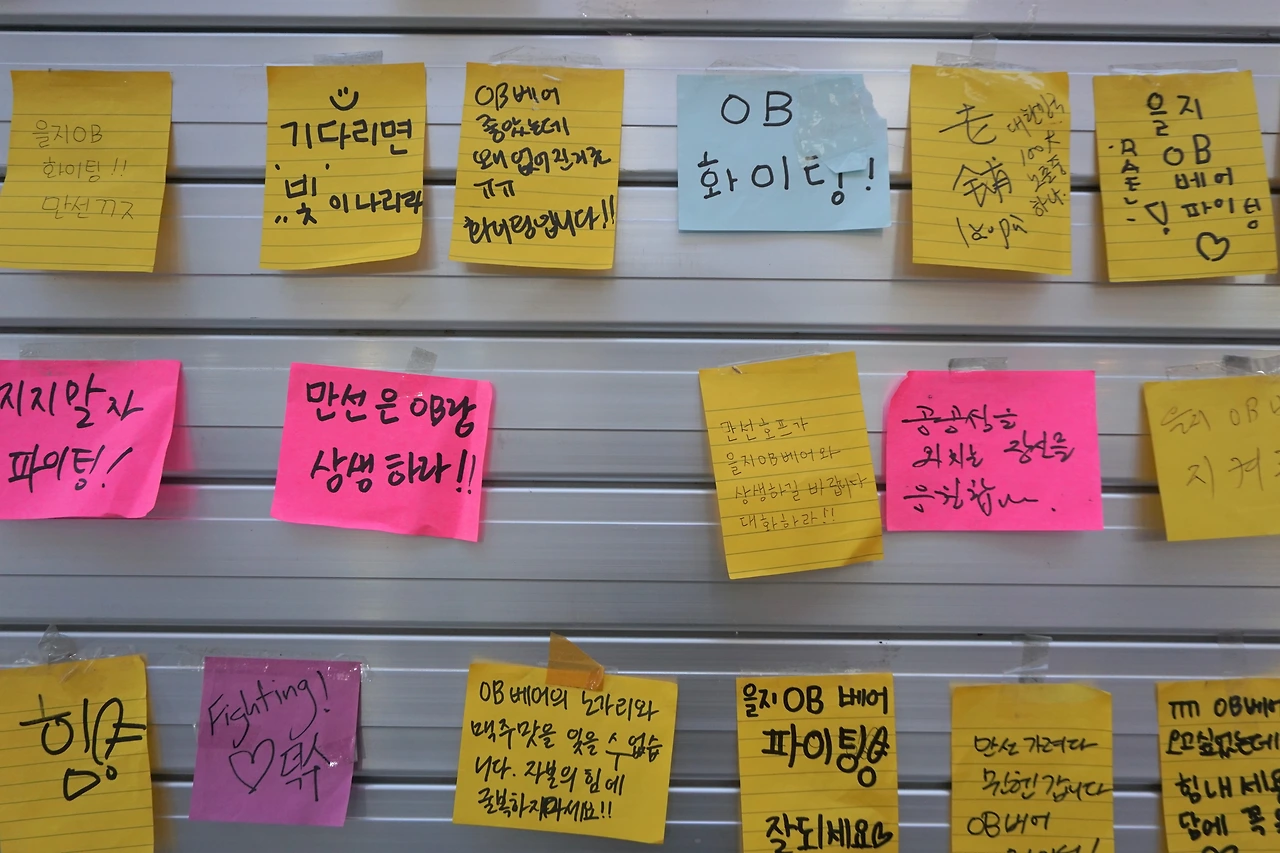 을지OB
화이팅!!
만선 ㄲㅈ
기다리면
빛이 나리라
OB베어
좋았는데
왜 없어진거죠
ㅠㅠ
화이팅입니다!!
OB
화이팅!
老
鋪
대한민국
100大
노포중
하나.
을지
OB
베어
파이팅
지지말자
파이팅!
만선은 OB랑
상생하라!!
만선호프가
을지OB베어와
상생하길 바랍니다
대화하라!!
공공성을
외치는
응원합
을지 OB
지켜
힘
Fighting!
OB베어의 노가리와
맥주맛을 잊을 수 없습
니다. 자본의 힘에
굴복하지마세요!!
을지OB 베어
파이팅
잘되세요
만선 가려다
OB베어
OB베어
오고싶었는데
힘내세요
담에 꼭